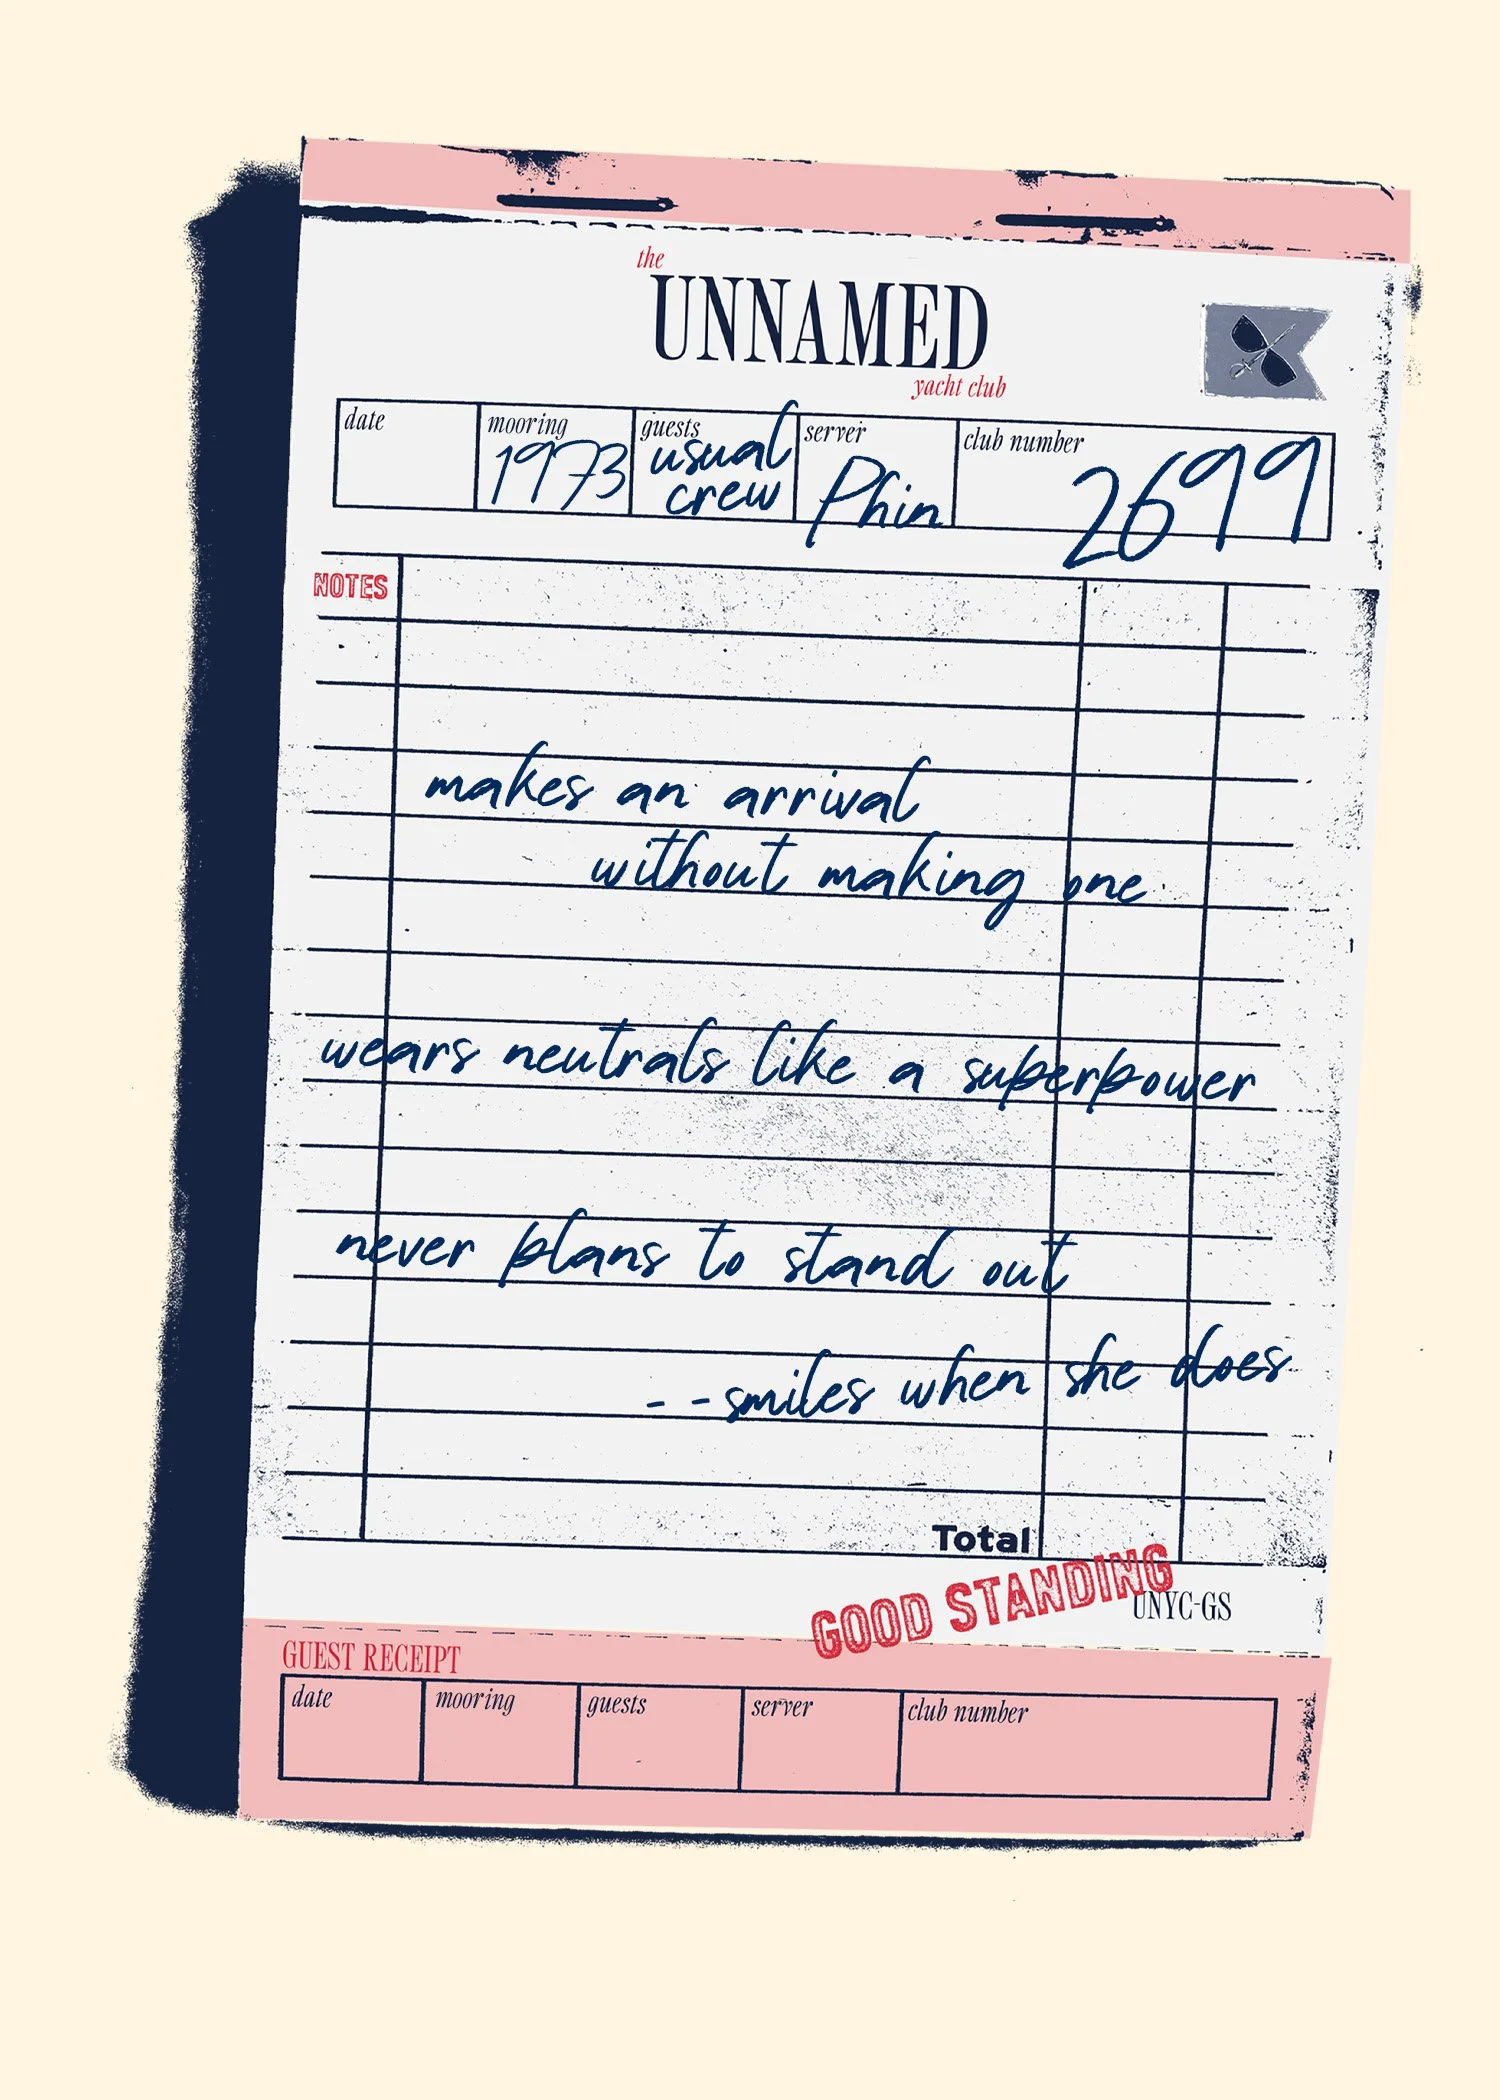 the
UNNAMED
yacht club
date mooring guests server club number
1973 usual crew Phin 2699
NOTES
makes an arrival
without making one
wears neutrals like a superpower
never plans to stand out
--smiles when she does
Total
GOOD STANDING
UNYC-GS
GUEST RECEIPT
date mooring guests server club number